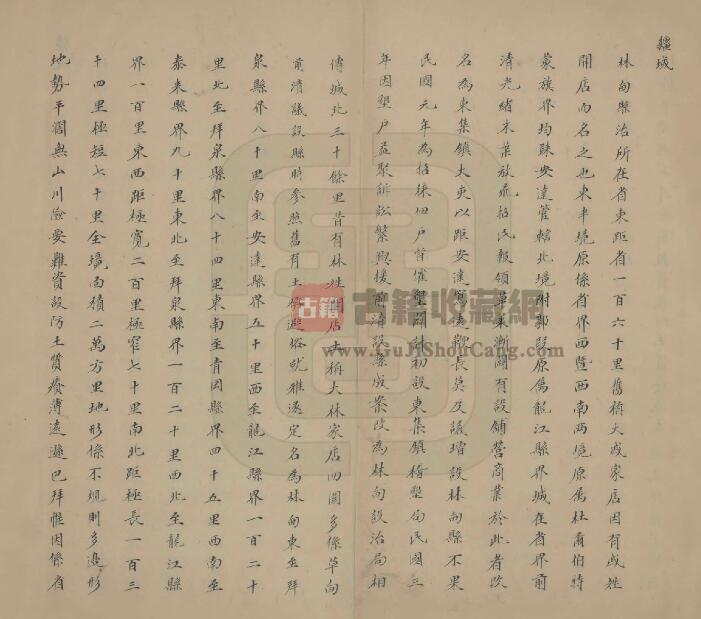 疆域
林甸縣治所在省東距省一百六十里舊稱大戚家店因有戚姓
開店而名之也東半境原係省界西暨西南兩境原屬杜爾伯特
蒙旗界均隸安達管轄北境附郭段原屬龍江縣界城在省界前
清光緒末葉放荒招民報領草萊漸闢有設鋪營商業於此者改
名為東集鎮大吏以距安達窎遠鞭長莫及議增設林甸縣不果
民國元年為招徠田戶督催墾闢計初設東集鎮稽墾局民國三
年因墾戶益聚訴訟繁興援前清設縣成案改為林甸設治局相
傳城北三十餘里昔有林姓開店土稱大林家店四圍多係草甸
前清議設縣時參照舊有土俗避俗就雅遂定名為林甸東至拜
泉縣界八十里南至安達縣界五十里西至龍江縣界一百二十
里北至拜泉縣界八十四里東南至青岡縣界四十五里西南至
泰來縣界九十里東北至拜泉縣界一百二十里西北至龍江縣
界一百里東西距極寬二百里極窄七十里南北距極長一百三
十四里極短七十里全境面積二萬方里地形係不規則多邊形
地勢平濶無山川險要難資設防土質瘠薄遠遜巴拜惟因係省
古籍
古籍收藏網
www.GuJiShouCang.com